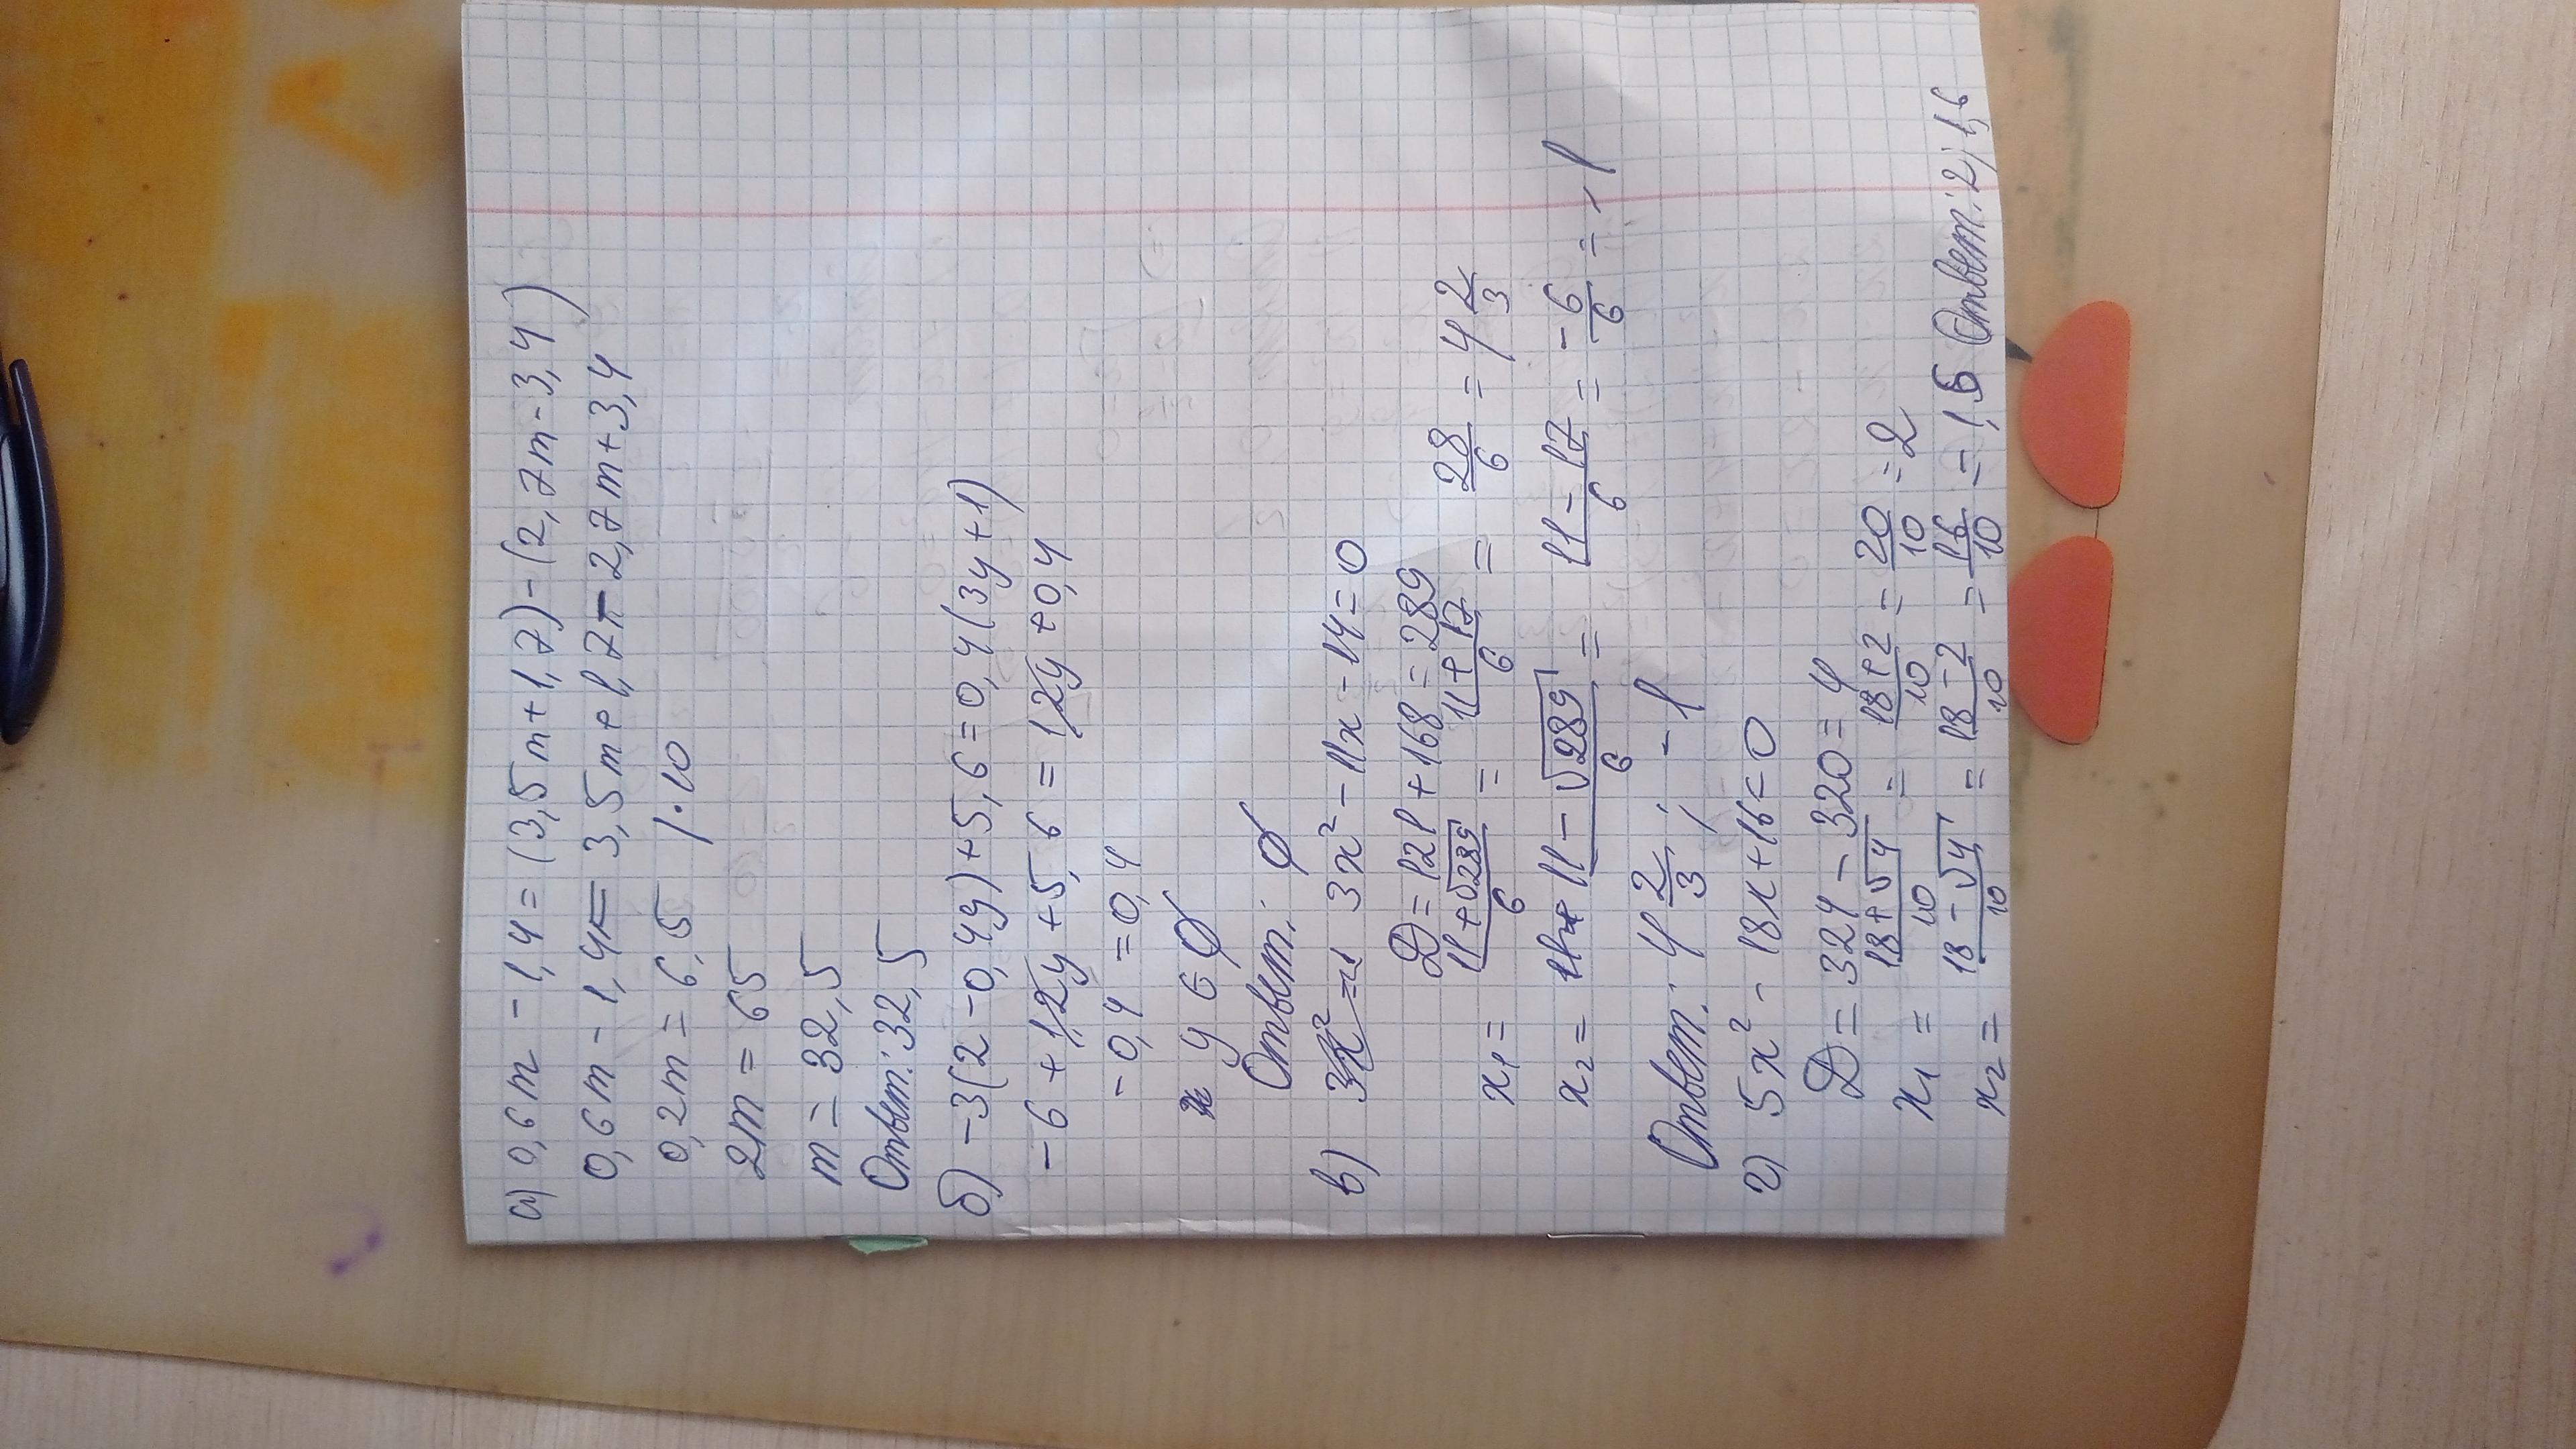 а) 0,6m - 1,4 = (3,5m + 1,7) - (2,7m - 3,4)
0,6m - 1,4 = 3,5m + 1,7 - 2,7m + 3,4
0,2m = 6,5 / · 10
2m = 65
m = 32,5
Ответ: 32,5
б) -3(2 - 0,4y) + 5,6 = 0,4(3y + 1)
-6 + 1,2y + 5,6 = 1,2y + 0,4
-0,4 = 0,4
y ∈ ∅
Ответ: ∅
в) 3x² - 11x - 14 = 0
D = 121 + 168 = 289
x₁ = (11 + √289)/6 = (11 + 17)/6 = 28/6 = 4 2/3
x₂ = (11 - √289)/6 = (11 - 17)/6 = -6/6 = -1
Ответ: 4 2/3; -1
г) 5x² - 18x + 16 = 0
D = 324 - 320 = 4
x₁ = (18 + √4)/10 = (18 + 2)/10 = 20/10 = 2
x₂ = (18 - √4)/10 = (18 - 2)/10 = 16/10 = 1,6 Ответ: 2; 1,6